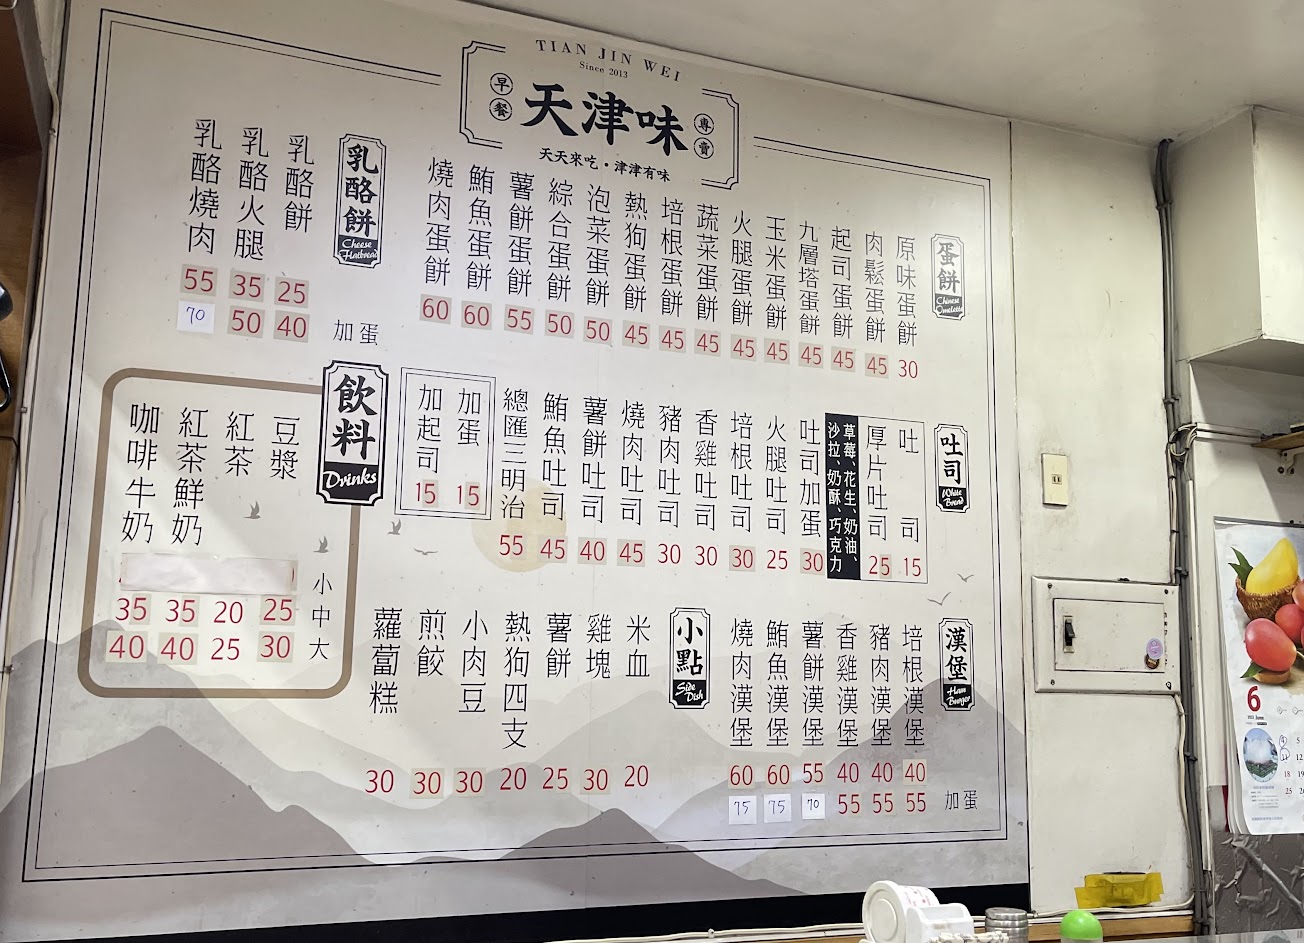 TIAN JIN WEI
Since 2013
早餐
天津味
專賣
天天來吃・津津有味
蛋餅
Chinese Omelette
原味蛋餅 30
肉鬆蛋餅 45
起司蛋餅 45
九層塔蛋餅 45
玉米蛋餅 45
火腿蛋餅 45
蔬菜蛋餅 45
培根蛋餅 45
熱狗蛋餅 45
泡菜蛋餅 50
綜合蛋餅 50
薯餅蛋餅 55
鮪魚蛋餅 60
燒肉蛋餅 60
乳酪餅
Cheese Flatbread
加蛋
乳酪餅 25 40
乳酪火腿 35 50
乳酪燒肉 55 70
吐司
White Bread
吐司 15
厚片吐司 25
草莓、花生、奶油、
沙拉、奶酥、巧克力
吐司加蛋 30
火腿吐司 25
培根吐司 30
香雞吐司 30
豬肉吐司 30
燒肉吐司 45
薯餅吐司 40
鮪魚吐司 45
總匯三明治 55
加蛋 15
加起司 15
飲料
Drinks
小
中
大
豆漿 25 30
紅茶 20 25
紅茶鮮奶 35 40
咖啡牛奶 35 40
漢堡
Ham Burger
加蛋
培根漢堡 40 55
豬肉漢堡 40 55
香雞漢堡 40 55
薯餅漢堡 55 70
鮪魚漢堡 60 75
燒肉漢堡 60 75
小點
Side Dish
米血 20
雞塊 30
薯餅 25
熱狗四支 20
小肉豆 30
煎餃 30
蘿蔔糕 30
6